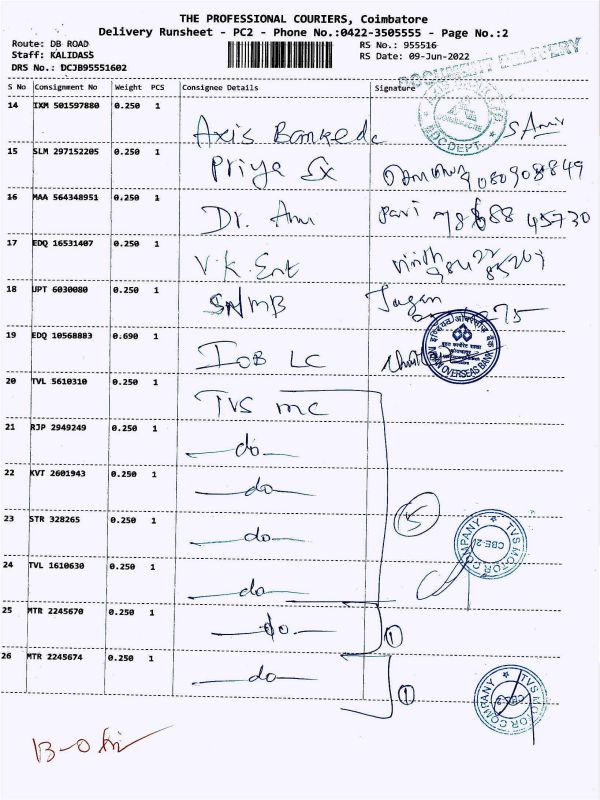 THE PROFESSIONAL COURIERS, Coimbatore
Delivery Runsheet - PC2 - Phone No.:0422-3505555 - Page No.:2
Route: DB ROAD RS No.: 955516
Staff: KALIDASS RS Date: 09-Jun-2022
DRS No.: DCJB95551602
DOCUMENT DELIVERY
S No Consignment No Weight PCS Consignee Details Signature
14 IXM 501597880 0.250 1
Axis Bank
EDC DEPT.
15 SLM 297152205 0.250 1
Priya Ex
16 MAA 564348951 0.250 1
Dr. Anu
17 EDQ 16531407 0.250 1
V.K. Ent
18 UPT 6030080 0.250 1
Jagan
19 EDQ 10568883 0.690 1
IOB LC
INDIAN OVERSEAS BANK
20 TVL 5610310 0.250 1
TVS mc
21 RJP 2949249 0.250 1
do
22 KVT 2601943 0.250 1
do
23 STR 328265 0.250 1
do
5
TVS MOTOR COMPANY
CBE-2
24 TVL 1610630 0.250 1
do
25 MTR 2245670 0.250 1
do
1
26 MTR 2245674 0.250 1
do
1
TVS MOTOR COMPANY